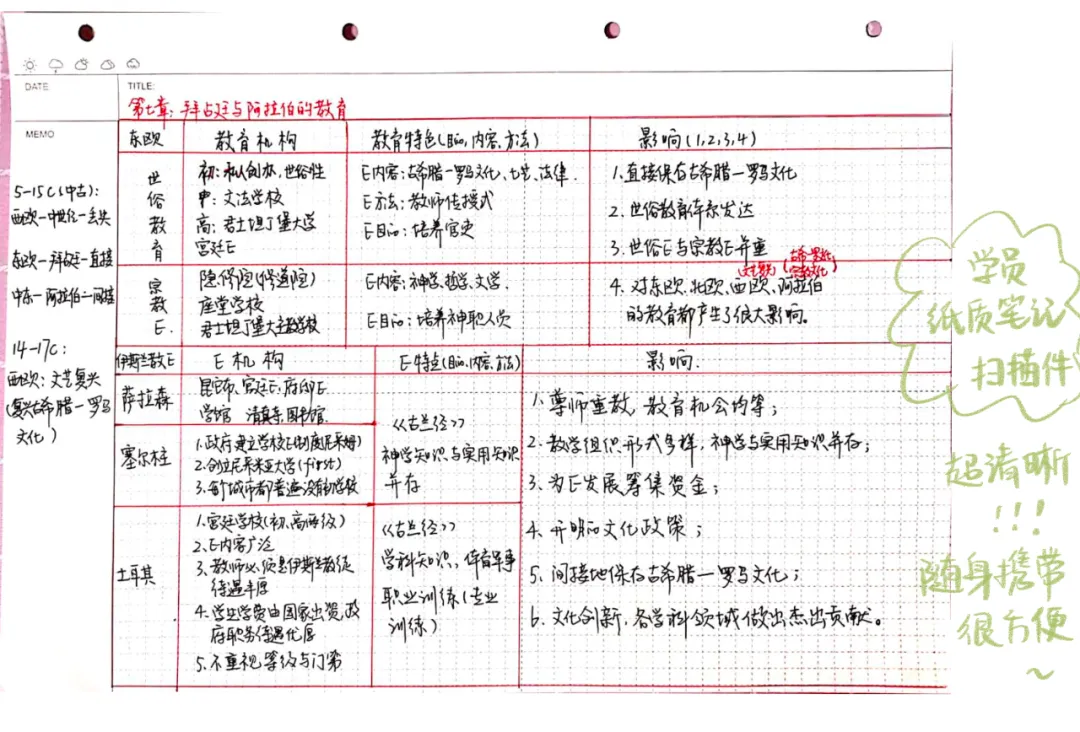 DATE
TITLE:
第七章：拜占廷与阿拉伯的教育
MEMO
5-15C(中古)：
西欧-中世纪-丢失
东欧-拜占廷-直接
中东-阿拉伯-间接
14-17C：
西欧：文艺复兴
(复兴古希腊-罗马
文化)
东欧
教育机构
教育特色(目的，内容，方法)
影响(1,2,3,4)
世俗教育
初：私人创办，世俗性
中：文法学校
高：君士坦丁堡大学
宫廷E
E内容：古希腊-罗马文化，七艺、法律.
E方法：教师传授式
E目的：培养官吏
1.直接保存古希腊-罗马文化
2.世俗教育体系发达
3.世俗E与宗教E并重
(古希-罗吐
宗教文化)
4.对东欧、北欧、西欧、阿拉伯
的教育都产生了很大影响。
宗教E.
隐修院(修道院)
座堂学校
君士坦丁堡大主教学校
E内容：神学，哲学，文学.
E目的：培养神职人员
伊斯兰教E
E机构
E特点(目的，内容，方法)
影响.
萨拉森
昆它卜，宫廷E，府邸E
学馆 清真寺，图书馆.
《古兰经》
神学知识与实用知识
并存
塞尔柱
1.政府建立学校E制度(尼采姆)
2.创立尼采米亚大学(first)
3.每个城市都普遍设有的学校
土耳其
1.宫廷学校(初、高两级)
2.E内容广泛
3.教师必须是伊斯兰教徒
待遇丰厚
4.学生学费由国家出资，政
府职务待遇优厚
5.不重视等级与门第
《古兰经》
学科知识，体育军事
职业训练(专业
训练)
1.尊师重教，教育机会均等；
2.教学组织形式多样，神学与实用知识并存；
3.为E发展筹集资金；
4.开明的文化政策；
5.间接地保存古希腊-罗马文化；
6.文化创新，各学科领域做出杰出贡献。
学员
纸质笔记
扫描件
超清晰
!!!
随身携带
很方便
~